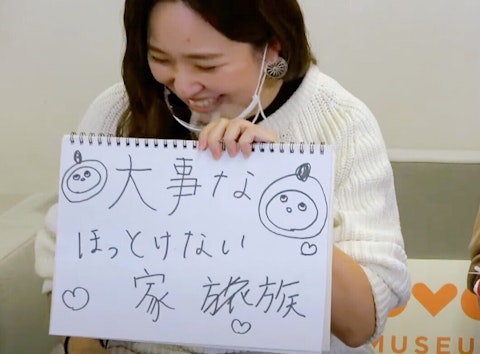 大事な
ほっとけない
家 族
MUSEU